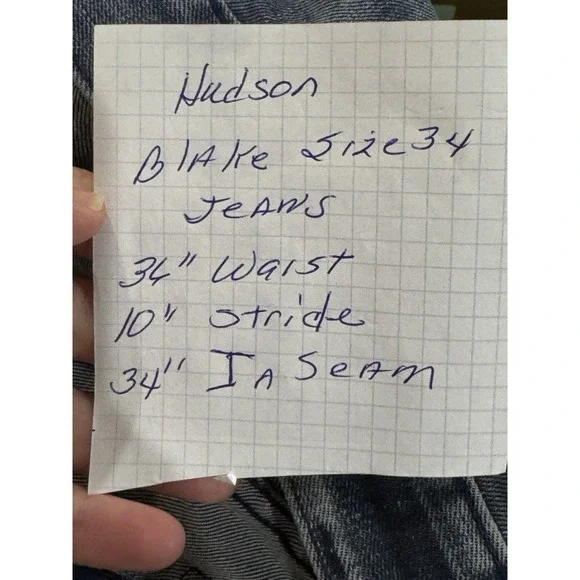 Hudson
BlAKe Size 34
JeANS
36" Waist
10" Stride
34" In SeAm